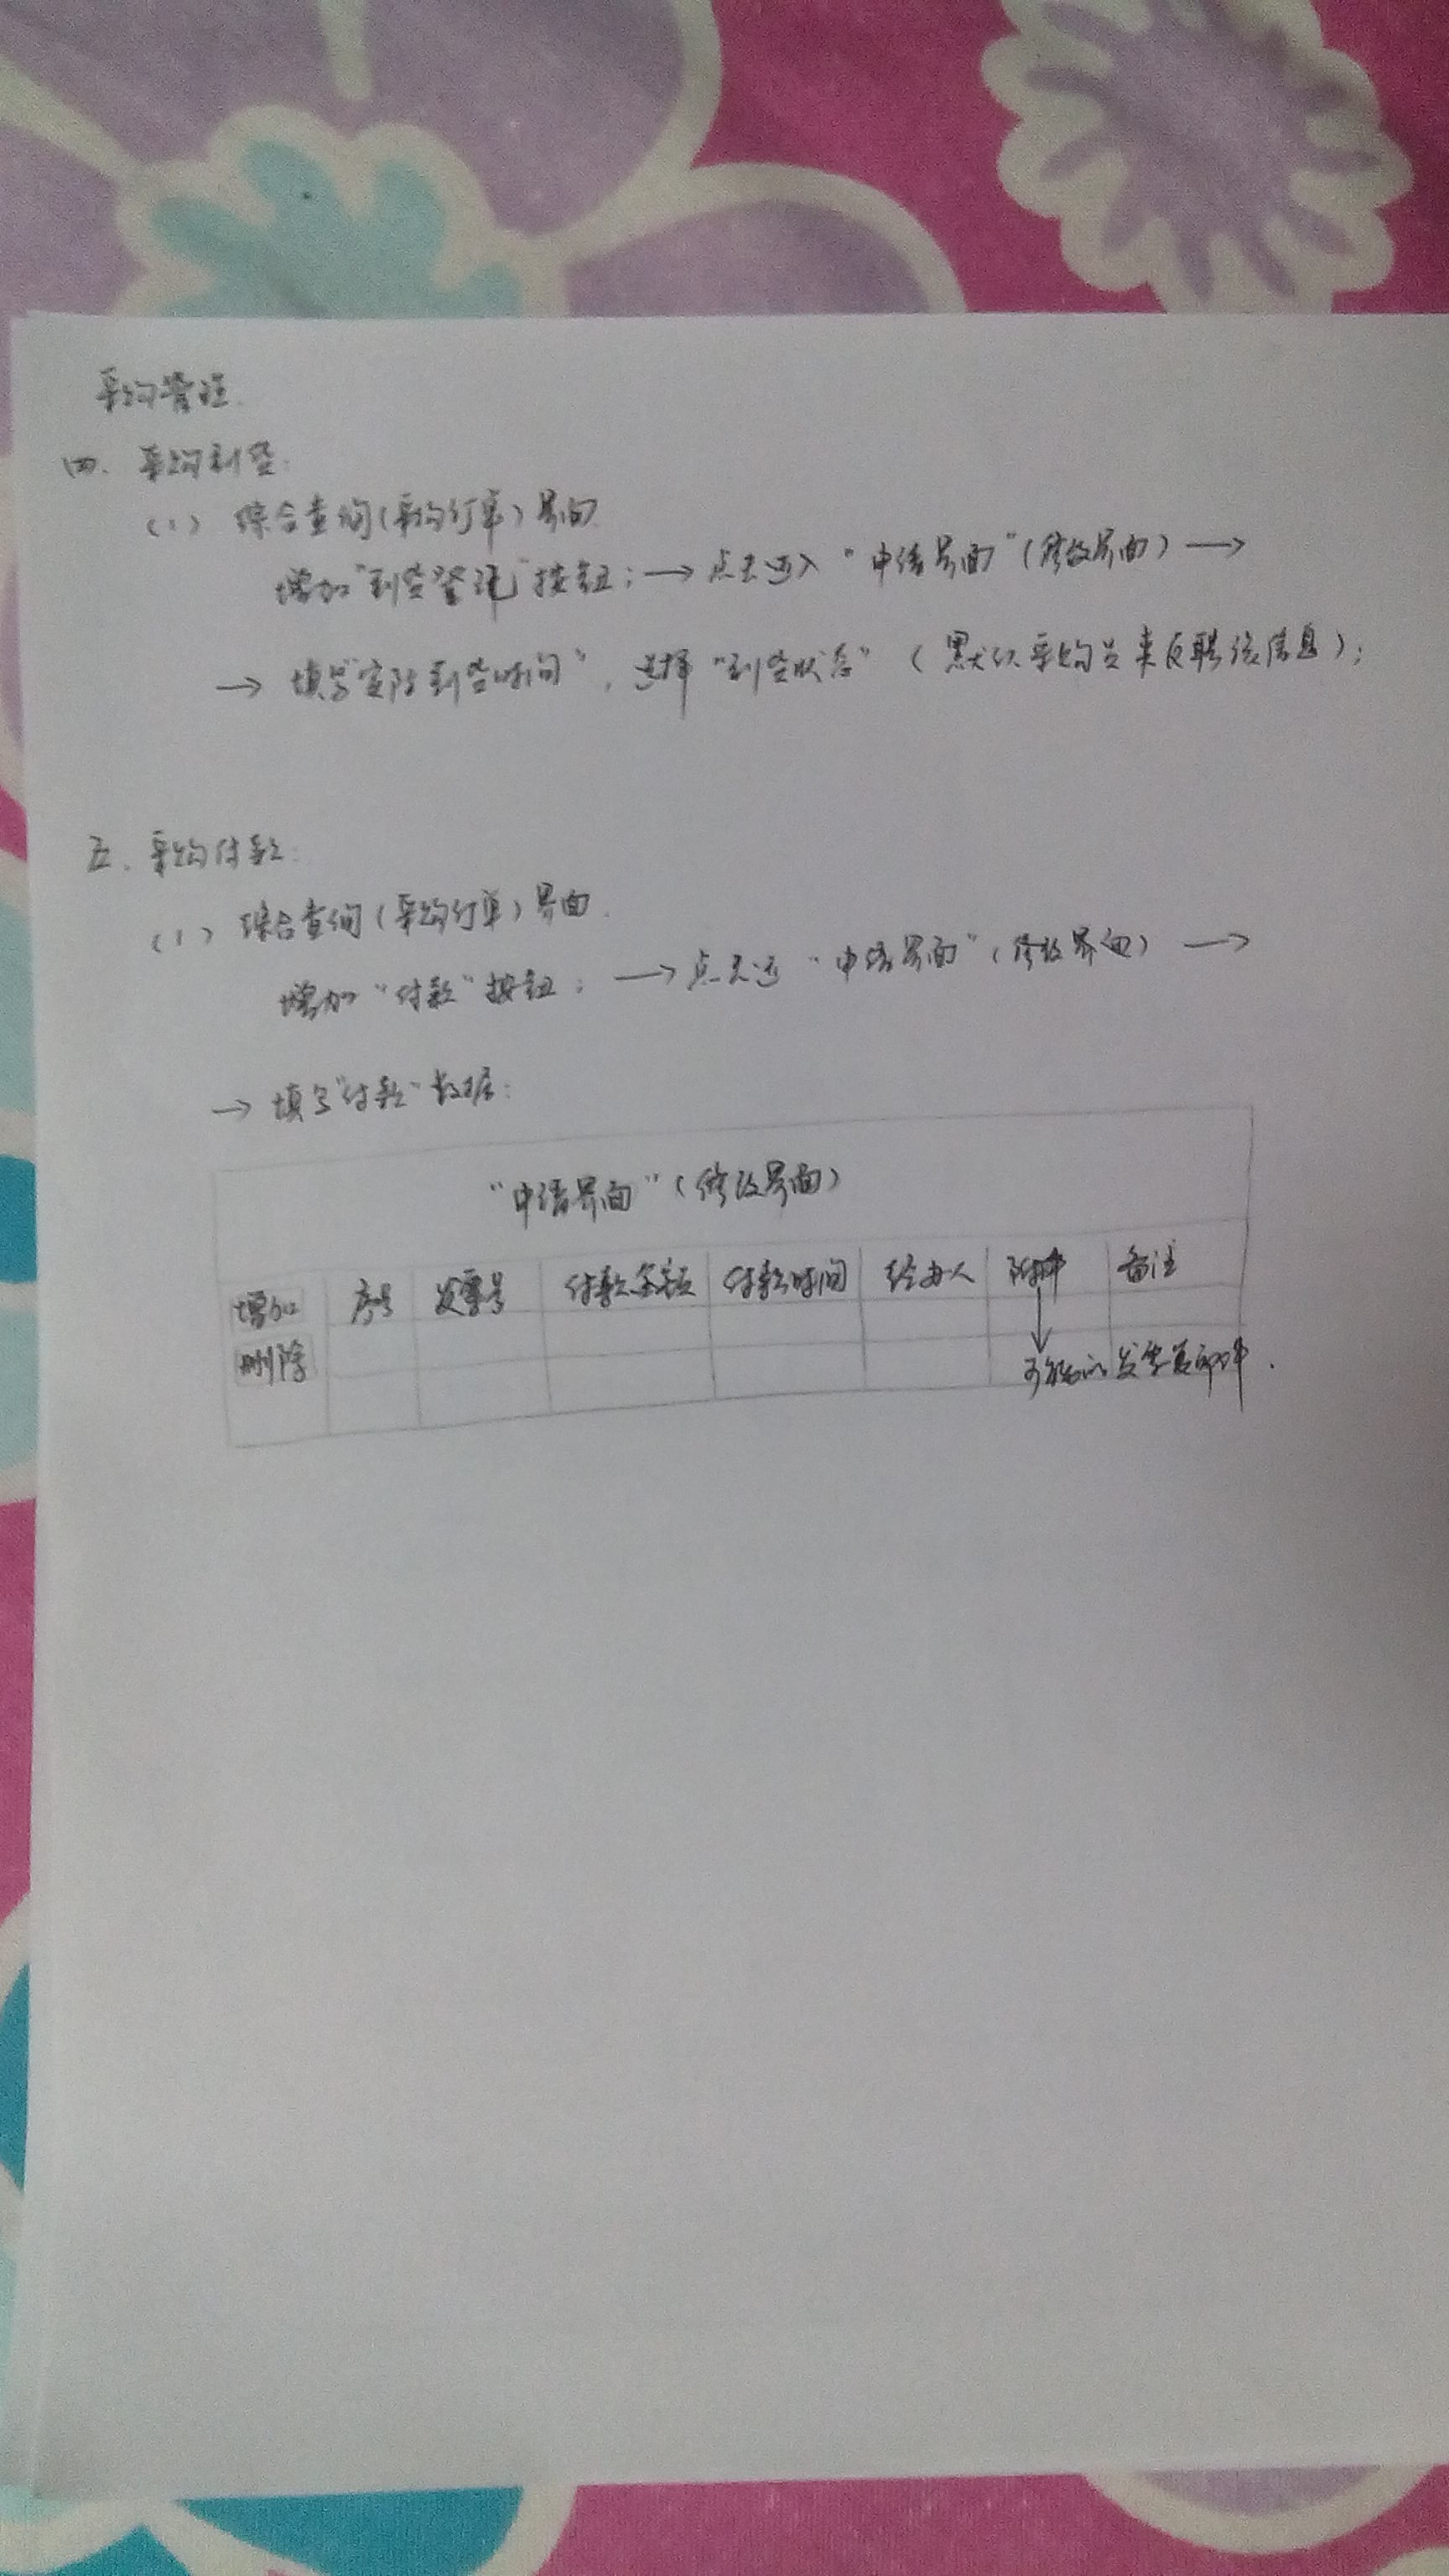 采购管理.
四. 采购到货:
(1) 综合查询(采购订单)界面.
增加"到货登记"按钮; → 点击进入 "申请界面"(修改界面) →
→ 填写"实际到货时间", 选择 "到货状态" (默认采购员来反馈该信息);
五. 采购付款:
(1) 综合查询(采购订单)界面.
增加 "付款" 按钮; → 点击进 "申请界面"(修改界面) →
→ 填写"付款"数据:
"申请界面"(修改界面)
增加 序号 发票号 付款金额 付款时间 经办人 附件 备注
删除
↓
发票复印件.